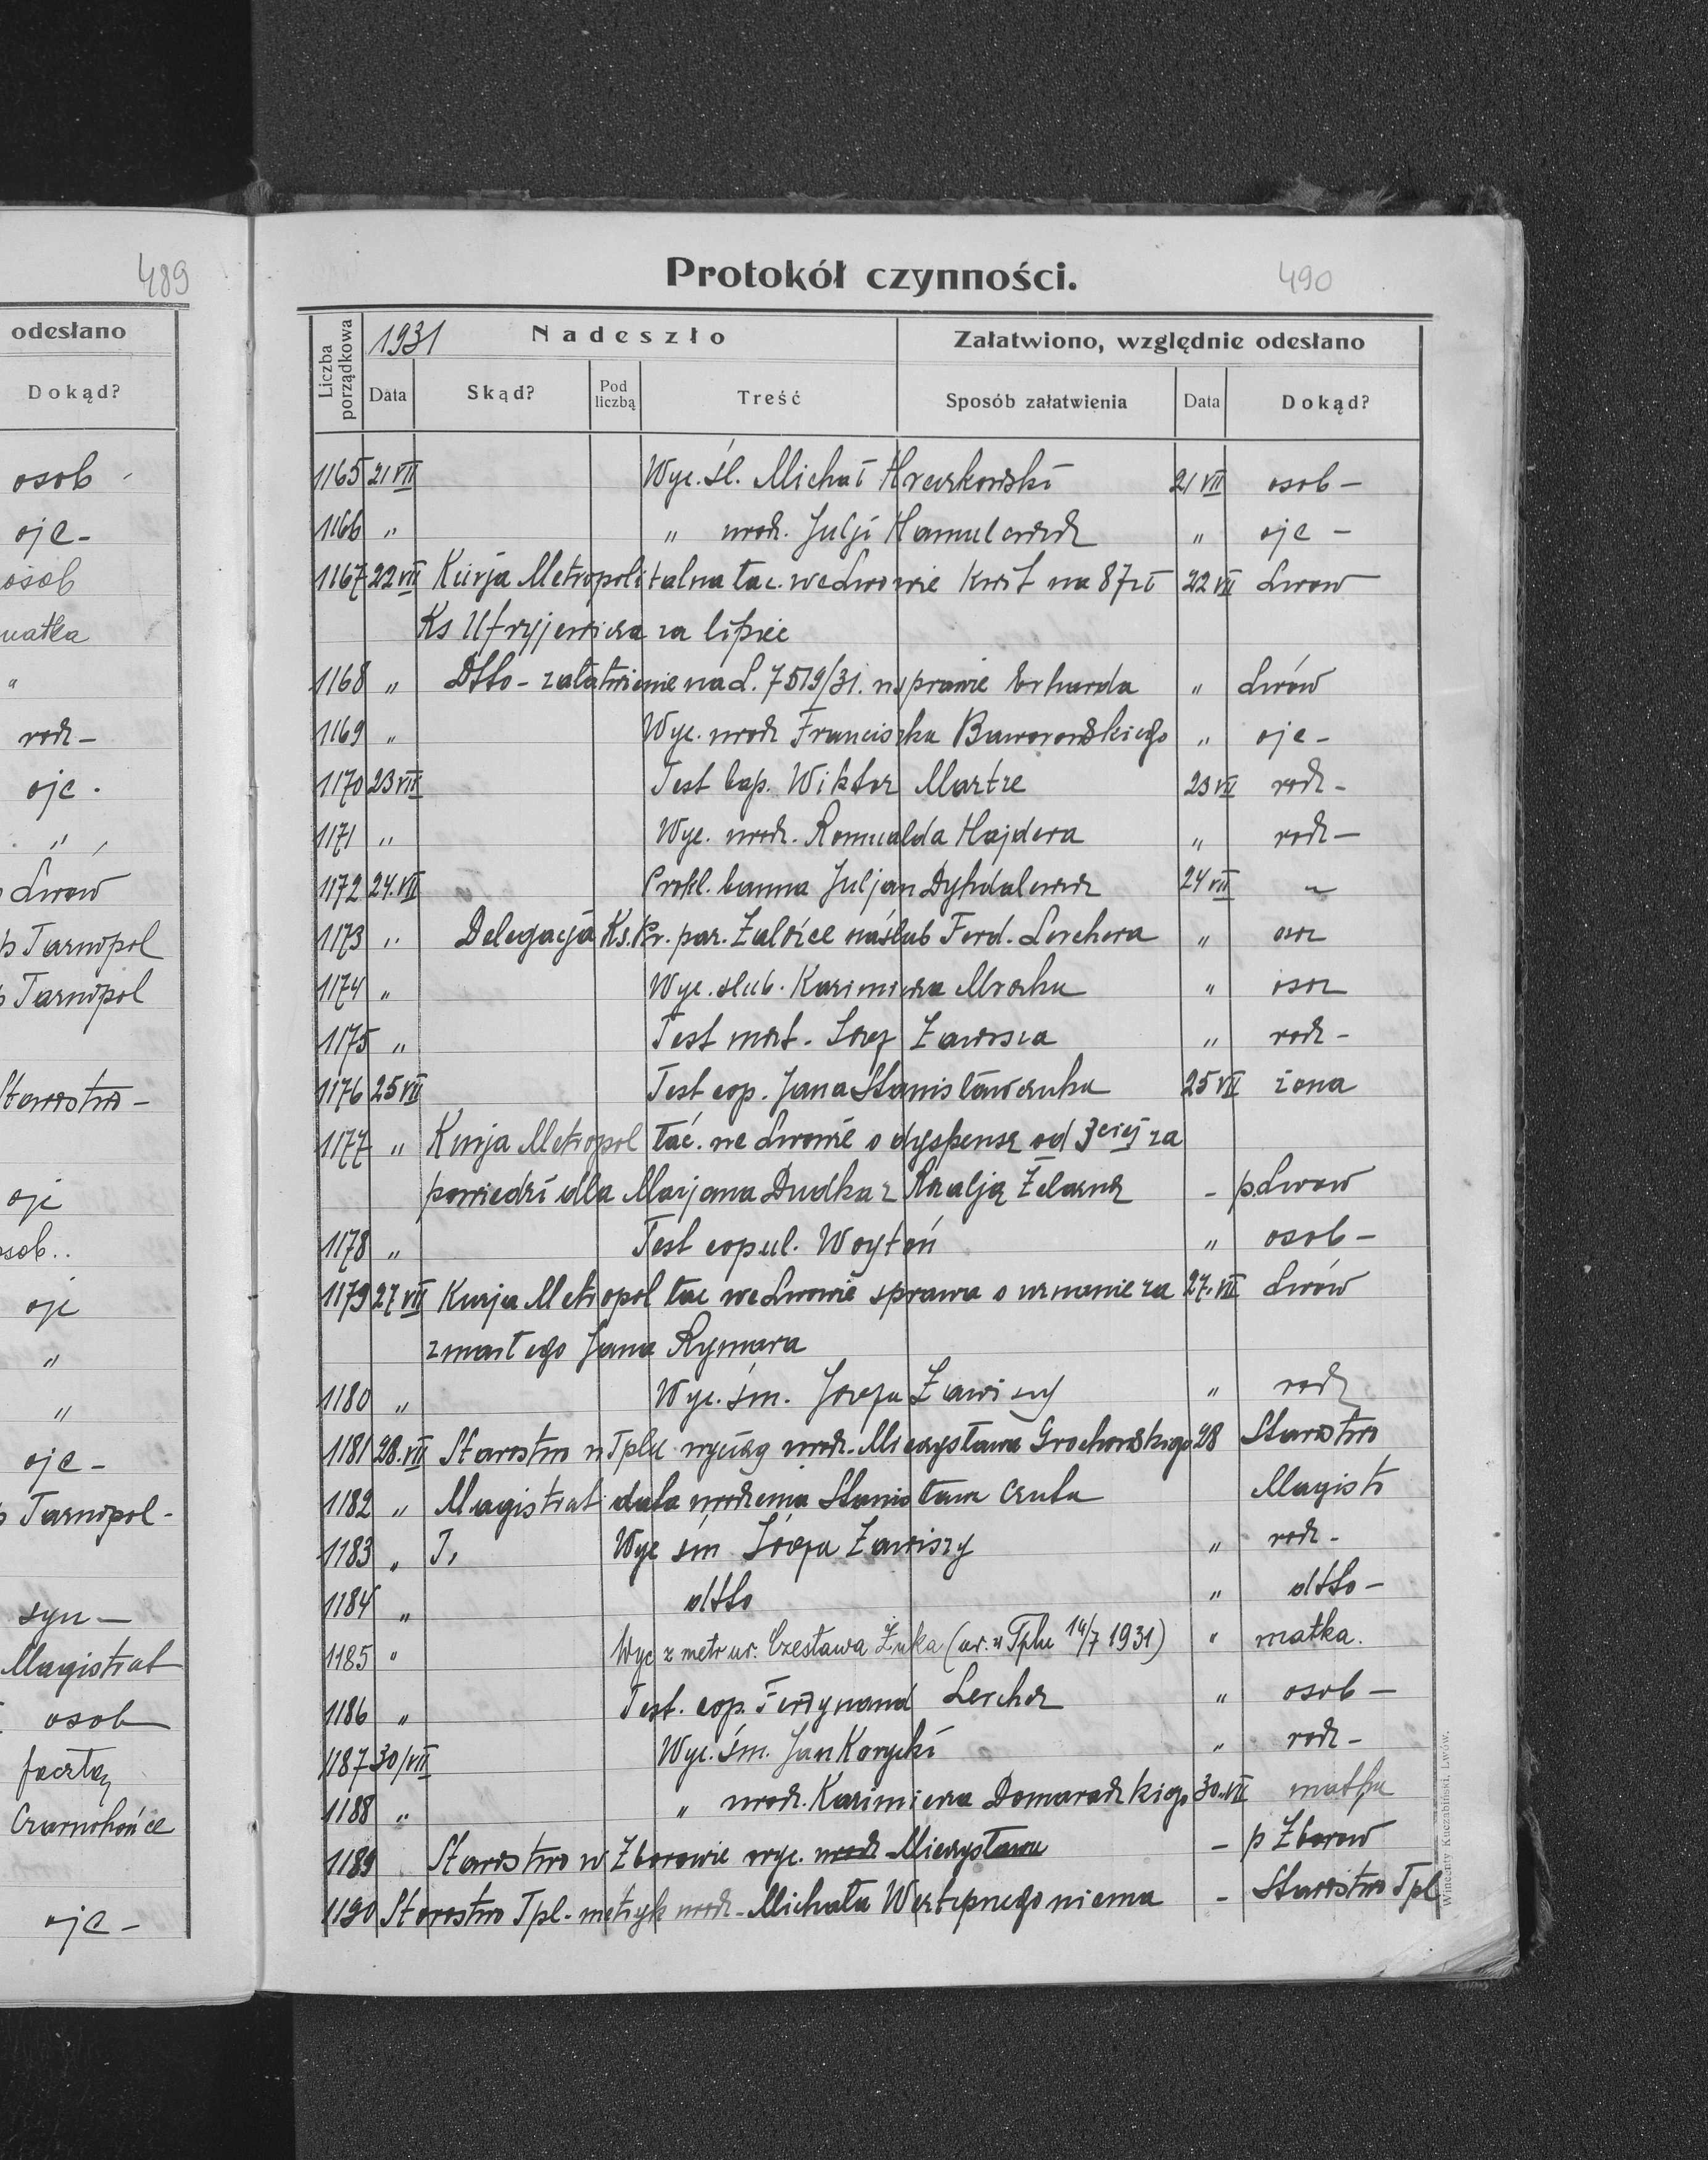 489
odesłano
Dokąd?
osob -
ojc -
osob
matka
"
rodz -
ojc .
"
Lwów
p Tarnopol
p Tarnopol
Starostwo -
ojc
osob..
ojc
"
"
ojc -
p Tarnopol -
syn -
Magistrat
osob
pocztą
Czarnokońce
ojc -
Protokół czynności. 490
Liczba porządkowa 1931 Nadeszło Załatwiono, względnie odesłano
Data Skąd? Pod liczbą Treść Sposób załatwienia Data Dokąd?
1165 21 VII Wyc. śl. Michał Hreczkowski 21 VII osob -
1166 " " urodz. Julji Hamulewicz " ojc -
1167 22 VII Kurja Metropolitalna łac. we Lwowie kwit na 87 zł 22 VII Lwow
Ks Ufryjewicza za lipiec
1168 " Dtto - załatwienie na L. 7519/31. w sprawie Erharda " Lwów
1169 " Wyc. urodz Franciszka Baworowskiego " ojc -
1170 23 VII Test bap. Wiktor Martze 23 VII rodz -
1171 " Wyc. urodz. Romualda Hajdera " rodz -
1172 24. VII Prokl. banna Juljan Dyhdalewicz 24 VII "
1173 " Delegacja Ks. Pr. par. Załoźce na ślub Ferd. Lerchera " osob
1174 " Wyc. slub. Kazimierza Mroczka " osob
1175 " Test mort. Józef Zawisza " rodz -
1176 25 VII Test cop. Jana Stanisławczuka 25 VII żona
1177 " Kurja Metropol łac. we Lwowie o dyspensę od 3ciej za
powiedzi dla Marjana Dudka z Rozalją Żelazną - p. Lwow
1178 " Test copul. Woytoń " osob -
1179 27 VII Kurja Metropol łac we Lwowie sprawa o uznanie za 27. VII Lwów
zmarłego Jana Rymara
1180 " Wyc. śm. Józefa Zawiszy " rodz
1181 28. VII Starostwo w Tplu wyciąg urodz. Mieczysława Grochowskiego 28 Starostwo
1182 " Magistrat data urodzenia Stanisława Czuła Magistr
1183 " J. Wyc śm Józefa Zawiszy " rodz -
1184 " dtto " dtto -
1185 " Wyc z metr ur. Czesława Żuka (ur. w Tplu 14/7 1931) " matka.
1186 " Test. cop. Ferdynand Lercher " osob -
1187 30/VII Wyc. śm. Jan Korycki " rodz -
1188 " " urodz. Kazimierza Domaradzkiego 30. VII matka
1189 Starostwo w Zborowie wyc. urodz Mieczysława - p Zborow
1190 Starostwo Tpl. metryk urodz - Michała Wertepnego niema - Starostwo Tpl
Wincenty Kuczabiński, Lwów.